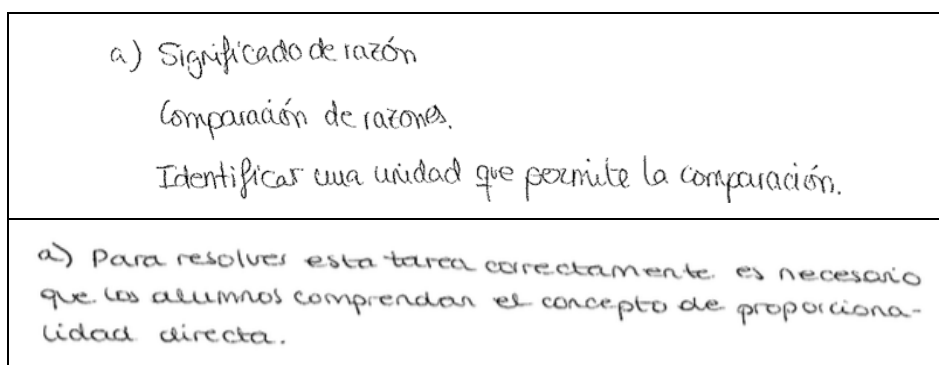 a) Significado de razón
Comparación de razones.
Identificar una unidad que permite la comparación.
a) Para resolver esta tarea correctamente es necesario
que los alumnos comprendan el concepto de proporciona-
lidad directa.